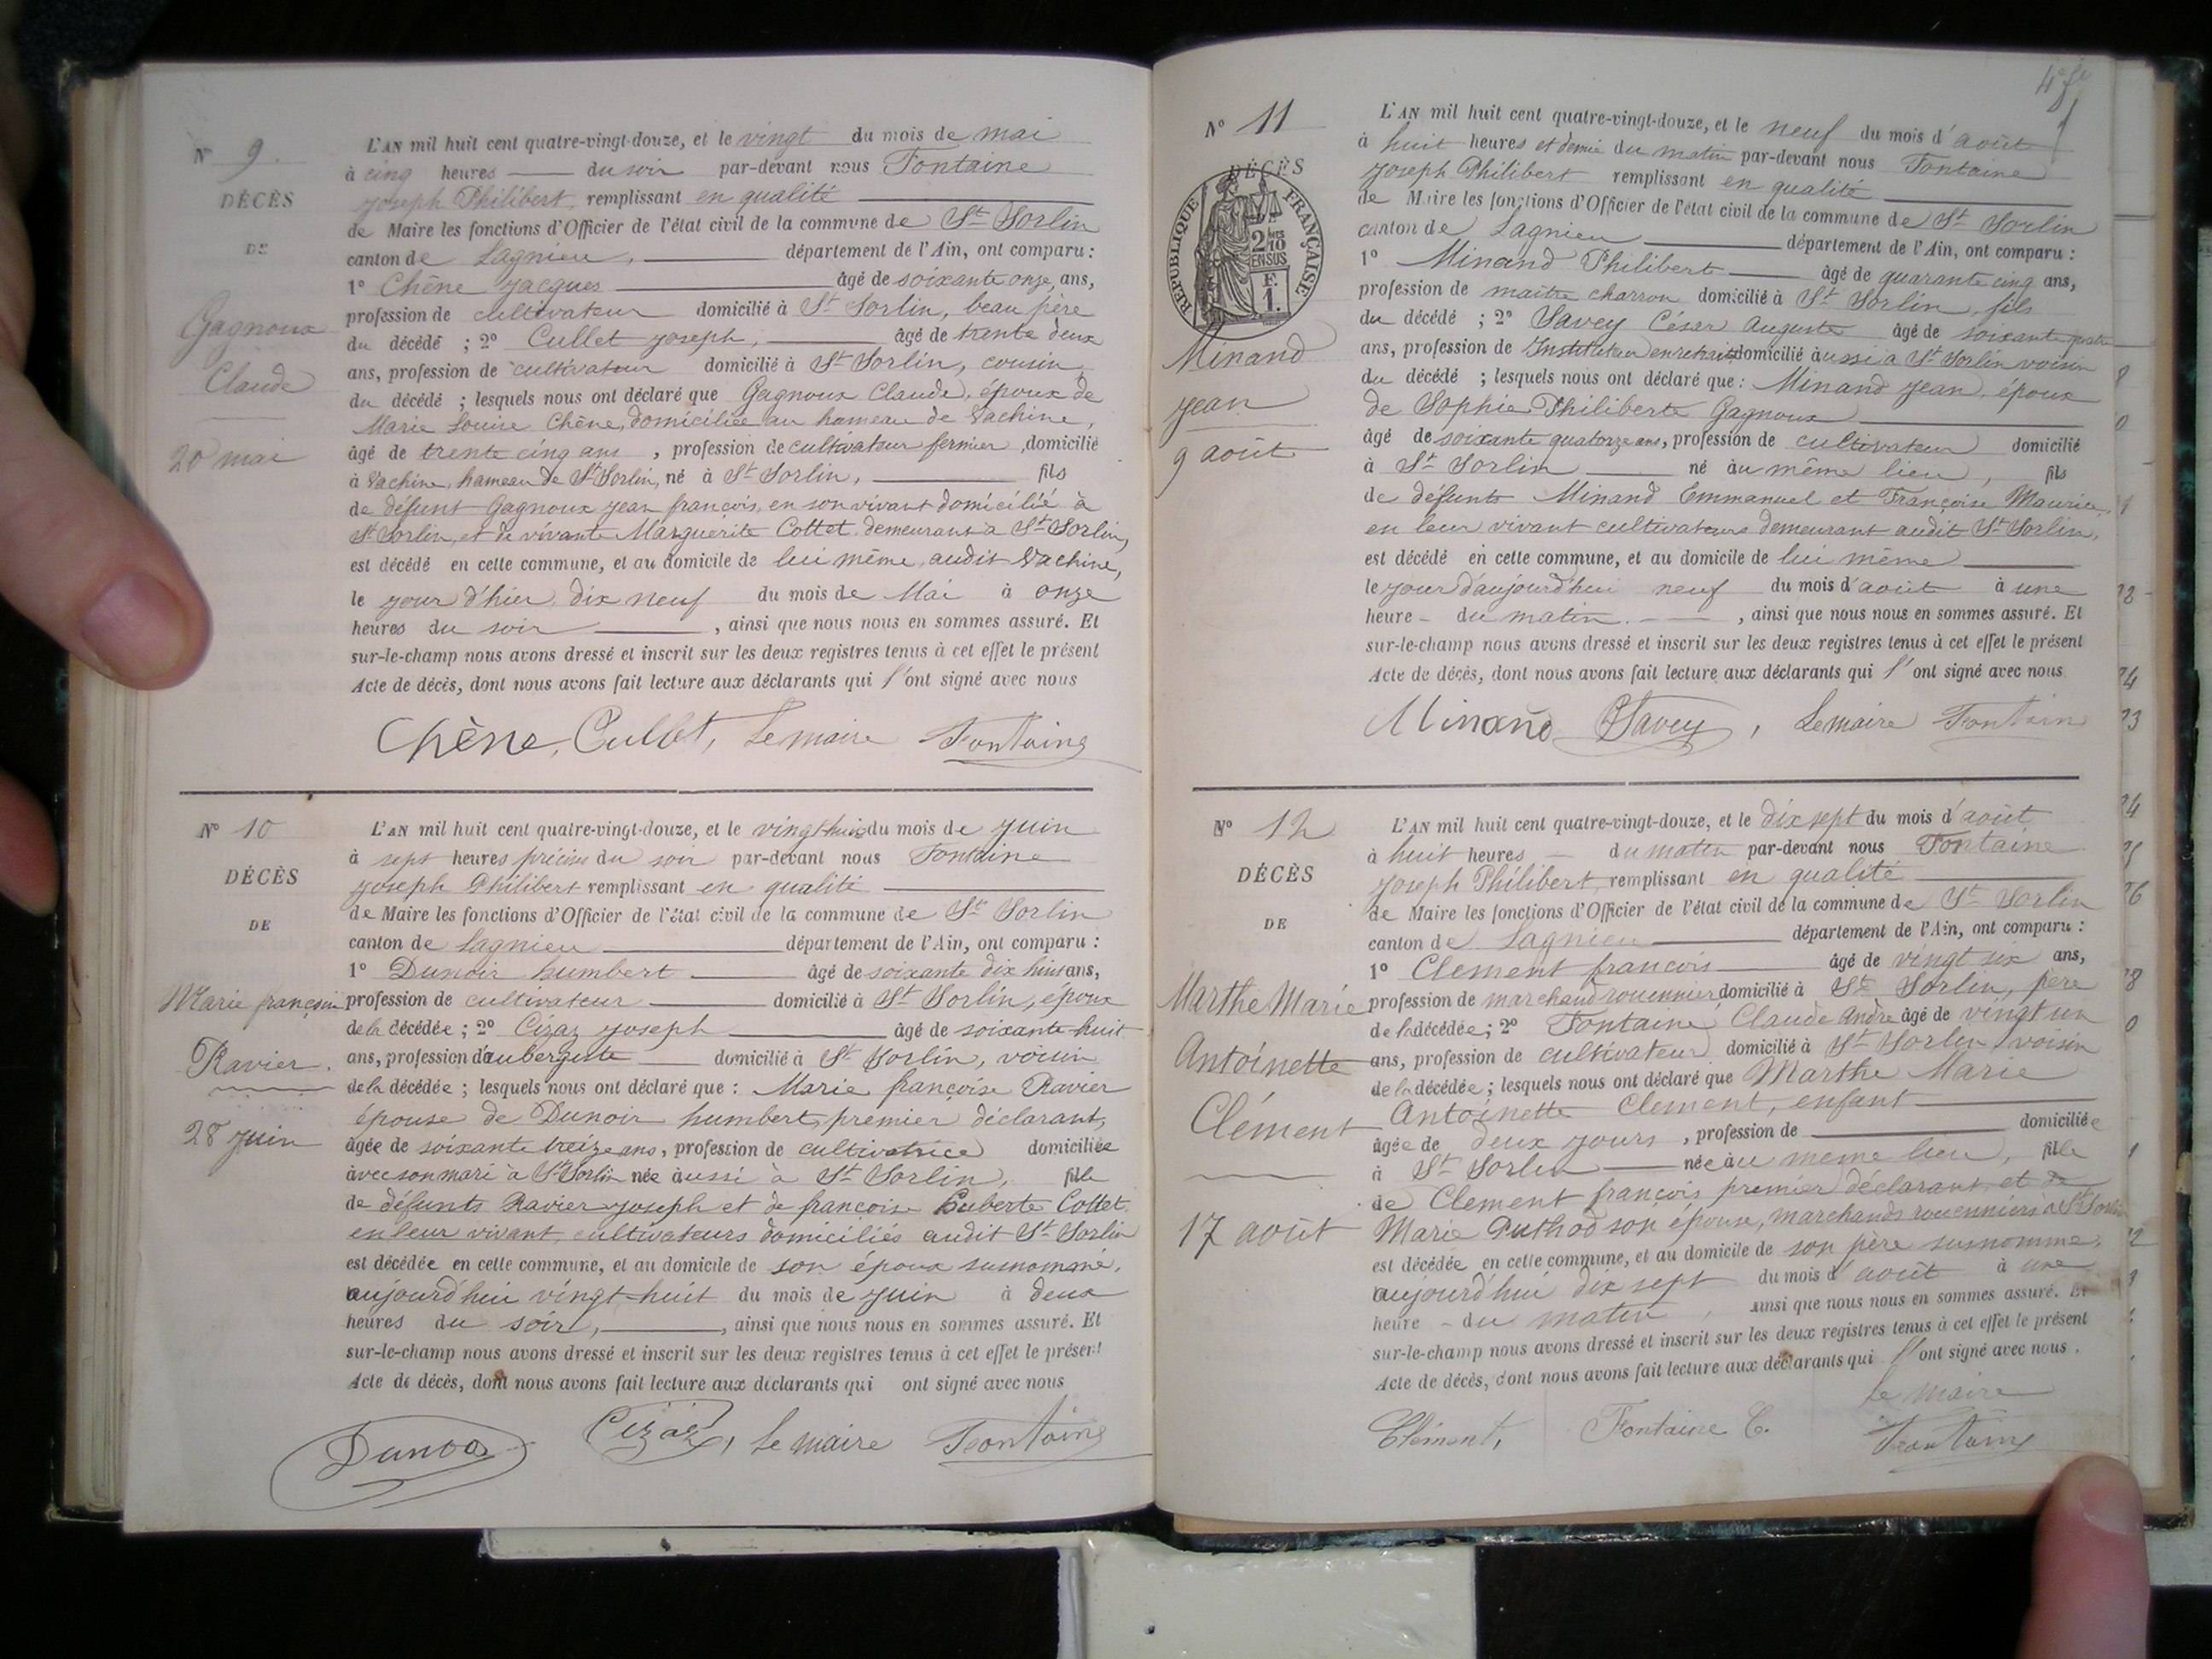 N° 9.
DÉCÈS
DE
Gagnoux
Claude
20 mai
L'AN mil huit cent quatre-vingt-douze, et le vingt du mois de mai
à cinq heures du soir par-devant nous Fontaine
Joseph Philibert, remplissant en qualité
de Maire les fonctions d'Officier de l'état civil de la commune de St Sorlin
canton de Lagnieu, département de l'Ain, ont comparu :
1° Chêne Jacques âgé de soixante onze, ans,
profession de cultivateur domicilié à St Sorlin, beau père
du décédé ; 2° Cullet Joseph, âgé de trente deux
ans, profession de cultivateur domicilié à St Sorlin, cousin
du décédé ; lesquels nous ont déclaré que Gagnoux Claude, époux de
Marie Louise Chêne, domiciliée au hameau de Vachine,
âgé de trente cinq ans, profession de cultivateur fermier, domicilié
à Vachine, hameau de St Sorlin, né à St Sorlin, fils
de défunt Gagnoux Jean françois, en son vivant domicilié à
St Sorlin, et de vivante Marguerite Cottet demeurant à St Sorlin,
est décédé en cette commune, et au domicile de lui même, audit Vachine,
le jour d'hier, dix neuf du mois de Mai à onze
heures du soir, ainsi que nous nous en sommes assuré. Et
sur-le-champ nous avons dressé et inscrit sur les deux registres tenus à cet effet le présent
Acte de décès, dont nous avons fait lecture aux déclarants qui l'ont signé avec nous
Chêne, Cullet, Le maire Fontaine
N° 10
DÉCÈS
DE
Marie françoise
Ravier.
28 juin
L'AN mil huit cent quatre-vingt-douze, et le vingt huit du mois de juin
à sept heures précises du soir par-devant nous Fontaine
Joseph Philibert remplissant en qualité
de Maire les fonctions d'Officier de l'état civil de la commune de St Sorlin
canton de Lagnieu département de l'Ain, ont comparu :
1° Dunoir humbert âgé de soixante dix huit ans,
profession de cultivateur domicilié à St Sorlin, époux
de la décédée ; 2° Cizaz Joseph âgé de soixante-huit
ans, profession d'aubergiste domicilié à St Sorlin, voisin
de la décédée ; lesquels nous ont déclaré que : Marie françoise Ravier
épouse de Dunoir humbert, premier déclarant,
âgée de soixante treize ans, profession de cultivatrice domiciliée
avec son mari à St Sorlin née aussi à St Sorlin, fille
de défunts Ravier Joseph et de françoise Huberte Cottet
en leur vivant, cultivateurs domiciliés audit St Sorlin
est décédée en cette commune, et au domicile de son époux susnommé,
aujourd'hui vingt-huit du mois de juin à deux
heures du soir, ainsi que nous nous en sommes assuré. Et
sur-le-champ nous avons dressé et inscrit sur les deux registres tenus à cet effet le présent
Acte de décès, dont nous avons fait lecture aux déclarants qui ont signé avec nous
Dunoir Cizaz, le maire Fontaine
N° 11
DÉCÈS
RÉPUBLIQUE FRANÇAISE
2/10 EN SUS
F. 1.
Minand
Jean
9 août
L'AN mil huit cent quatre-vingt-douze, et le neuf du mois d'août
à huit heures et demie du matin par-devant nous Fontaine
Joseph Philibert remplissant en qualité
de Maire les fonctions d'Officier de l'état civil de la commune de St Sorlin
canton de Lagnieu département de l'Ain, ont comparu :
1° Minand Philibert âgé de quarante cinq ans,
profession de maître charron domicilié à St Sorlin, fils
du décédé ; 2° Savey César Auguste âgé de soixante quatre
ans, profession de Instituteur en retraite domicilié aussi à St Sorlin voisin
du décédé ; lesquels nous ont déclaré que : Minand Jean, époux
de Sophie Philiberte Gagnoux
âgé de soixante quatorze ans, profession de cultivateur domicilié
à St Sorlin né au même lieu, fils
de défunts Minand Emmanuel et Françoise Maurier,
en leur vivant cultivateurs demeurant audit St Sorlin,
est décédé en cette commune, et au domicile de lui même
le jour d'aujourd'hui neuf du mois d'août à une
heure du matin, ainsi que nous nous en sommes assuré. Et
sur-le-champ nous avons dressé et inscrit sur les deux registres tenus à cet effet le présent
Acte de décès, dont nous avons fait lecture aux déclarants qui l'ont signé avec nous
Minand Savey, Le maire Fontaine
N° 12
DÉCÈS
DE
Marthe Marie
Antoinette
Clément
17 août
L'AN mil huit cent quatre-vingt-douze, et le dix sept du mois d'août
à huit heures du matin par-devant nous Fontaine
Joseph Philibert, remplissant en qualité
de Maire les fonctions d'Officier de l'état civil de la commune de St Sorlin
canton de Lagnieu département de l'Ain, ont comparu :
1° Clement françois âgé de vingt six ans,
profession de marchand rouennier domicilié à St Sorlin, père
de la décédée ; 2° Fontaine Claude André âgé de vingt un
ans, profession de cultivateur domicilié à St Sorlin voisin
de la décédée ; lesquels nous ont déclaré que Marthe Marie
Antoinette Clement, enfant
âgée de deux jours, profession de domiciliée
à St Sorlin née au meme lieu, fille
de Clement françois premier déclarant et de
Marie Puthod son épouse, marchands rouenniers à St Sorlin
est décédée en cette commune, et au domicile de son père susnommé,
aujourd'hui dix sept du mois d'août à une
heure du matin, ainsi que nous nous en sommes assuré. Et
sur-le-champ nous avons dressé et inscrit sur les deux registres tenus à cet effet le présent
Acte de décès, dont nous avons fait lecture aux déclarants qui l'ont signé avec nous.
Le maire
Clément, Fontaine C. Fontaine